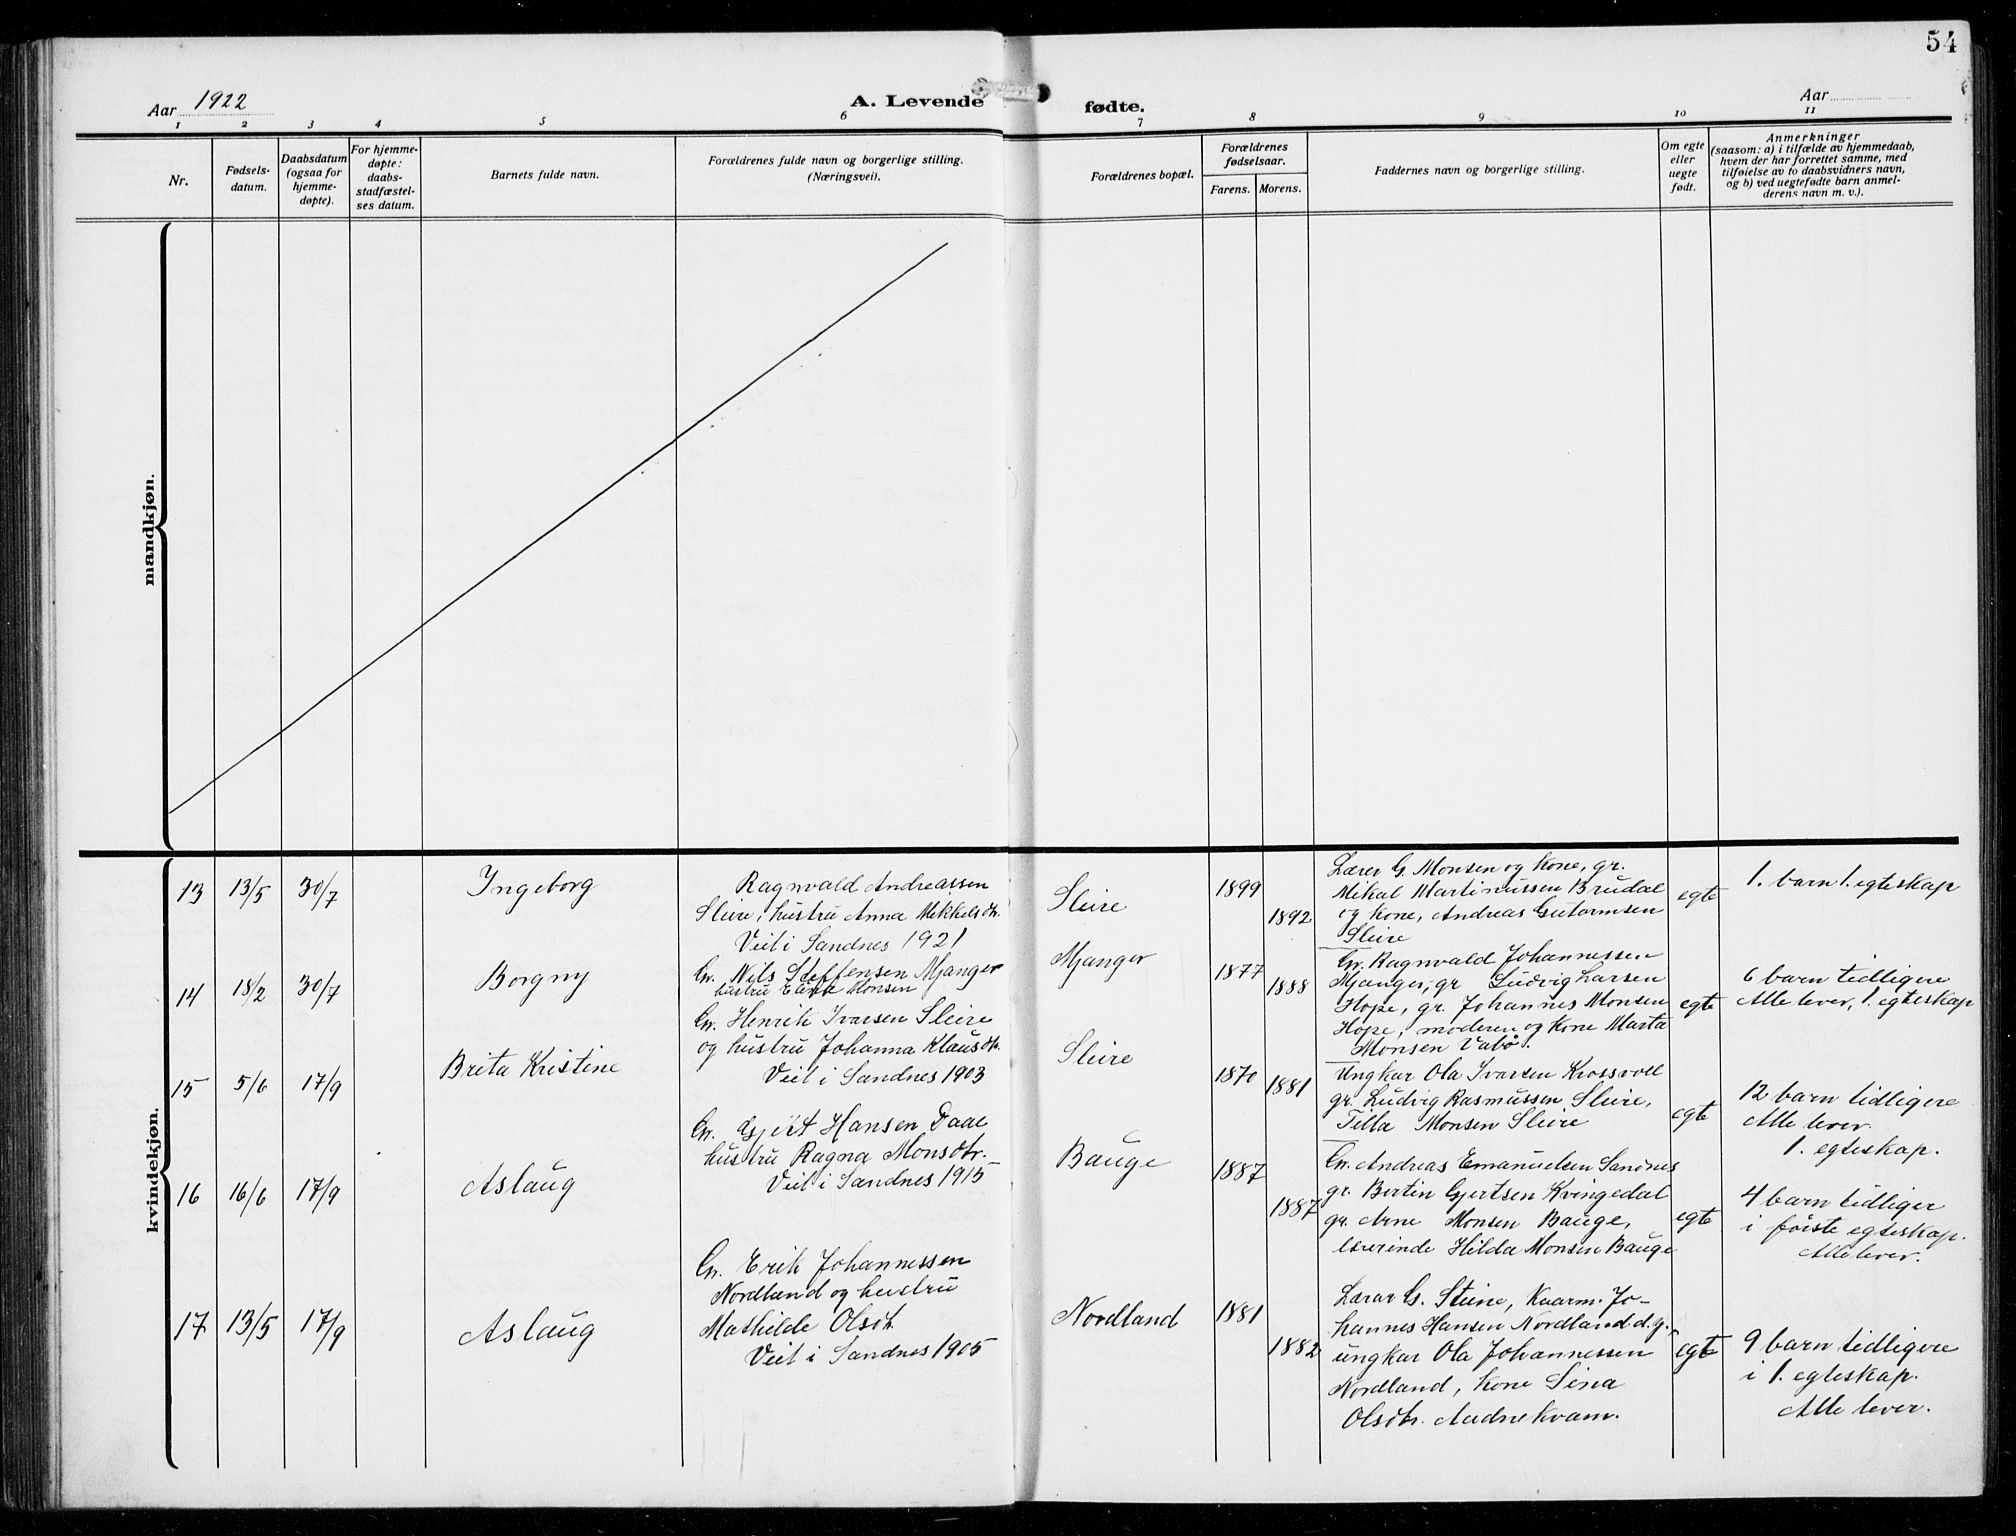 54
Aar 1922
A. Levende
fødte.
Aar
1 2 3 4 5 6 7 8 9 10 11
Nr.
Fødsels-
datum.
Daabsdatum
(ogsaa for
hjemme-
døpte).
For hjemme-
døpte:
daabs-
stadfæstel-
ses datum.
Barnets fulde navn.
Forældrenes fulde navn og borgerlige stilling.
(Næringsvei).
Forældrenes bopæl.
Forældrenes
fødselsaar.
Farens. Morens.
Faddernes navn og borgerlige stilling.
Om egte
eller
uegte
født.
Anmerkninger
(saasom: a) i tilfælde av hjemmedaab,
hvem der har forrettet samme, med
tilføielse av to daabsvidners navn,
og b) ved uegtefødte barn anmel-
derens navn m. v.).
mandkjøn.
kvindekjøn.
13 13/5 30/7
Ingeborg
Ragnvald Andreassen
Sleire, hustru Anna Mekkelsdtr.
Viet i Sandnes 1921
Sleire
1899
1892
Lærer G. Monsen og kone, gr.
Mikal Martinussen Brudal
og kone, Andreas Gutormsen
Sleire
egte
1. barn 1. egteskap
14 18/2 30/7
Borgny
Gr. Nils Steffensen Mjanger
hustru Elina Monsen
Mjanger
1877
1888
Gr. Ragnvald Johannessen
Mjanger, gr Ludvig Larsen
Hope, gr. Johannes Monsen
Hope, moderen og kone Marta
Monsen Vabø.
egte
6 barn tidligere
Alle lever, 1. egteskap
15 5/6 17/9
Brita Kristine
Gr. Henrik Ivarsen Sleire
og hustru Johanna Klausdtr.
Viet i Sandnes 1903
Sleire
1870
1881
Ungkar Ola Ivarsen Krossvoll
gr. Ludvig Rasmussen Sleire,
Tilla Monsen Sleire
egte
12 barn tidligere
Alle lever.
1. egteskap.
16 16/6 17/9
Aslaug
Gr. Gjert Hansen Daae
hustru Ragna Monsdtr.
Viet i Sandnes 1915
Bauge
1887
1887
Gr. Andreas Emanuelsen Sandnes
gr. Bertin Gjertsen Kvingedal
gr. Arne Monsen Bauge,
lærerinde Hilda Monsen Bauge
egte
4 barn tidliger
i første egteskap.
Alle lever.
17 13/5 17/9
Aslaug
Gr. Erik Johannessen
Nordland og hustru
Mathilde Olsdt.
Viet i Sandnes 1905
Nordland
1881
1882
Lærar G. Steine, Kaarm. Jo-
hannes Hansen Nordland d.y.,
ungkar Ola Johannessen
Nordland, kone Sina
Olsdtr. Audnekvam.
egte
9 barn tidligere
i 1. egteskap.
Alle lever.